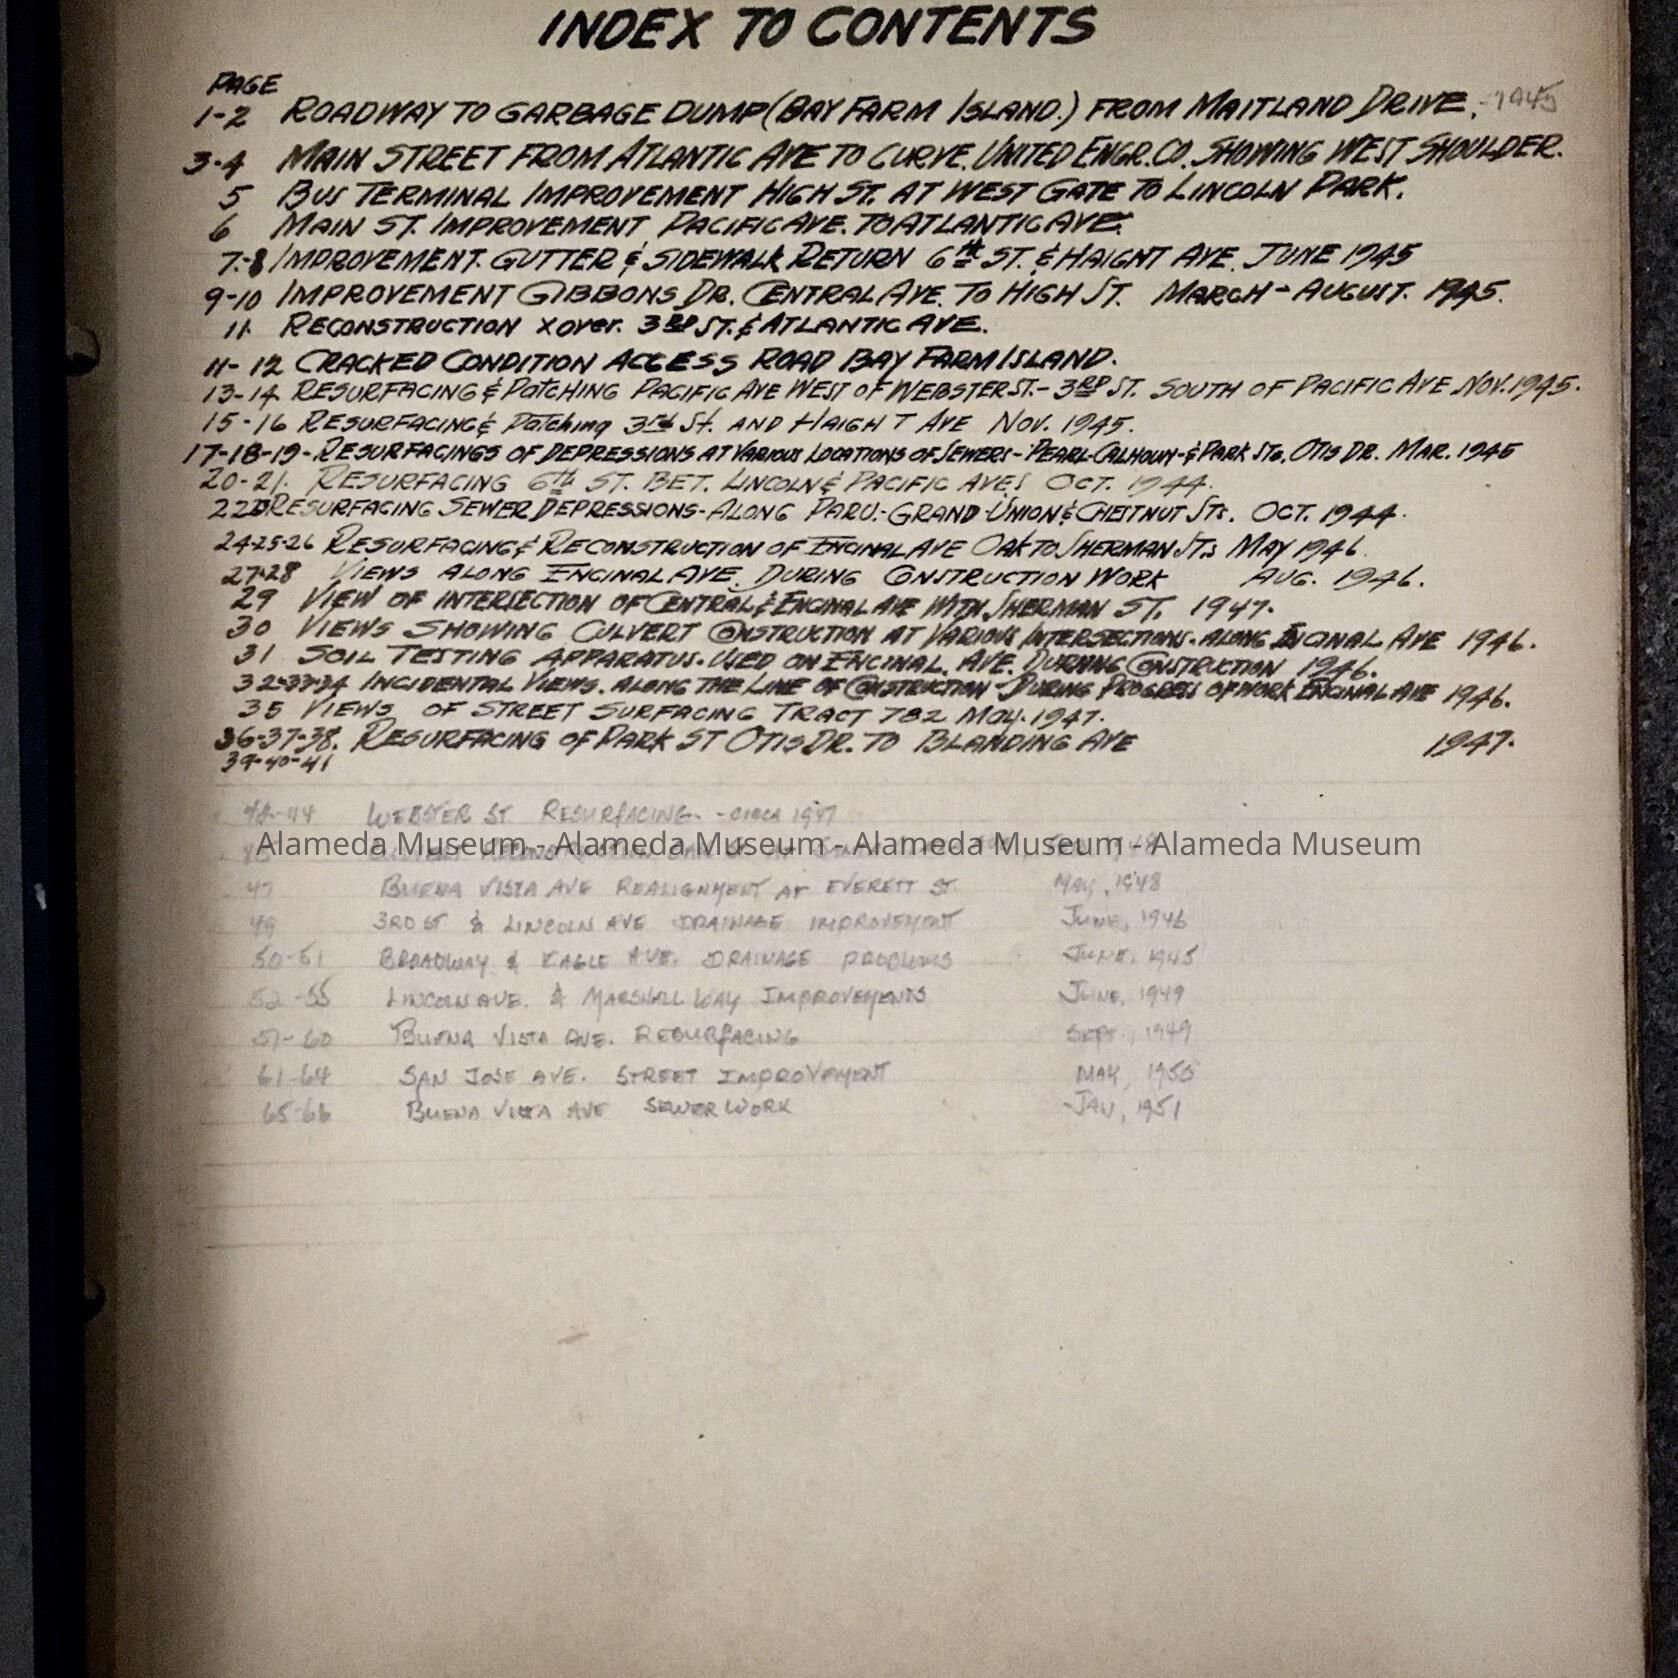 INDEX TO CONTENTS
PAGE
1-2 ROADWAY TO GARBAGE DUMP (BAY FARM ISLAND.) FROM MAITLAND DRIVE. -1945
3-4 MAIN STREET FROM ATLANTIC AVE TO CURVE. UNITED ENGR. CO. SHOWING WEST SHOULDER.
5 BUS TERMINAL IMPROVEMENT HIGH ST. AT WEST GATE TO LINCOLN PARK.
6 MAIN ST. IMPROVEMENT PACIFIC AVE. TO ATLANTIC AVE.
7-8 IMPROVEMENT. GUTTER & SIDEWALK RETURN 6TH ST. & HAIGHT AVE. JUNE 1945
9-10 IMPROVEMENT GIBBONS DR. CENTRAL AVE. TO HIGH ST. MARCH - AUGUST. 1945.
11 RECONSTRUCTION XOVER. 3RD ST. & ATLANTIC AVE.
11-12 CRACKED CONDITION ACCESS ROAD BAY FARM ISLAND.
13-14 RESURFACING & PATCHING PACIFIC AVE WEST OF WEBSTER ST. - 3RD ST. SOUTH OF PACIFIC AVE NOV. 1945.
15-16 RESURFACING & Patching 3rd St. AND HAIGHT AVE NOV. 1945.
17-18-19- RESURFACINGS OF DEPRESSIONS AT VARIOUS LOCATIONS OF SEWERS - PEARL-CALHOUN-& PARK STS, OTIS DR. MAR. 1945
20-21. RESURFACING 6TH ST. BET. LINCOLN & PACIFIC AVES OCT. 1944.
RESURFACING SEWER DEPRESSIONS - ALONG PARU. - GRAND - UNION & CHESTNUT STS. OCT. 1944.
24-25-26 RESURFACING & RECONSTRUCTION OF ENCINAL AVE OAK TO SHERMAN STS MAY 1946.
27-28 VIEWS ALONG ENCINAL AVE. DURING CONSTRUCTION WORK AUG. 1946.
29 VIEW OF INTERSECTION OF CENTRAL & ENCINAL AVE WITH SHERMAN ST. 1947.
30 VIEWS SHOWING CULVERT CONSTRUCTION AT VARIOUS INTERSECTIONS. ALONG ENCINAL AVE 1946.
31 SOIL TESTING APPARATUS. USED ON ENCINAL. AVE. DURING CONSTRUCTION 1946.
32-33-34 INCIDENTAL VIEWS. ALONG THE LINE OF CONSTRUCTION - DURING PROGRESS OF WORK ENCINAL AVE 1946.
35 VIEWS OF STREET SURFACING TRACT 782 MAY. 1947.
36-37-38. RESURFACING OF PARK ST OTIS DR. TO BLANDING AVE 1947.
39-40-41
WEBSTER ST. RESURFACING. - CIRCA 1947
Alameda Museum - Alameda Museum - Alameda Museum - Alameda Museum
47 BUENA VISTA AVE REALIGNMENT AT EVERETT ST. MAY, 1948
49 3RD ST & LINCOLN AVE DRAINAGE IMPROVEMENT JUNE, 1946
50-51 BROADWAY & EAGLE AVE. DRAINAGE PROBLEMS JUNE, 1945
52-55 LINCOLN AVE. & MARSHALL WAY IMPROVEMENTS JUNE, 1949
57-60 BUENA VISTA AVE. RESURFACING SEPT, 1949
61-64 SAN JOSE AVE. STREET IMPROVEMENT MAY, 1950
65-66 BUENA VISTA AVE SEWER WORK JAN, 1951